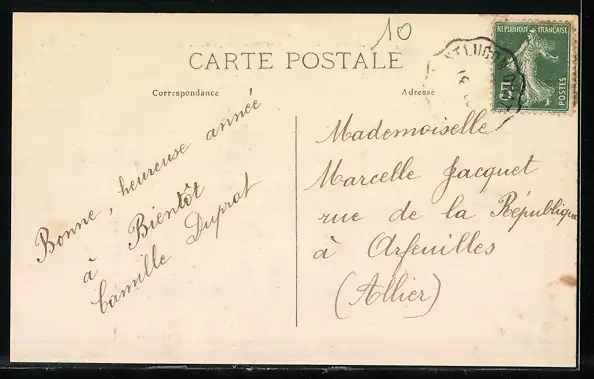 10
CARTE POSTALE
Correspondance
Adresse
REPUBLIQUE FRANÇAISE
POSTES
Bonne, heureuse année
à Bientôt
Camille Duprot
Mademoiselle
Marcelle Jacquet
rue de la République
à Arfeuilles
(Allier)